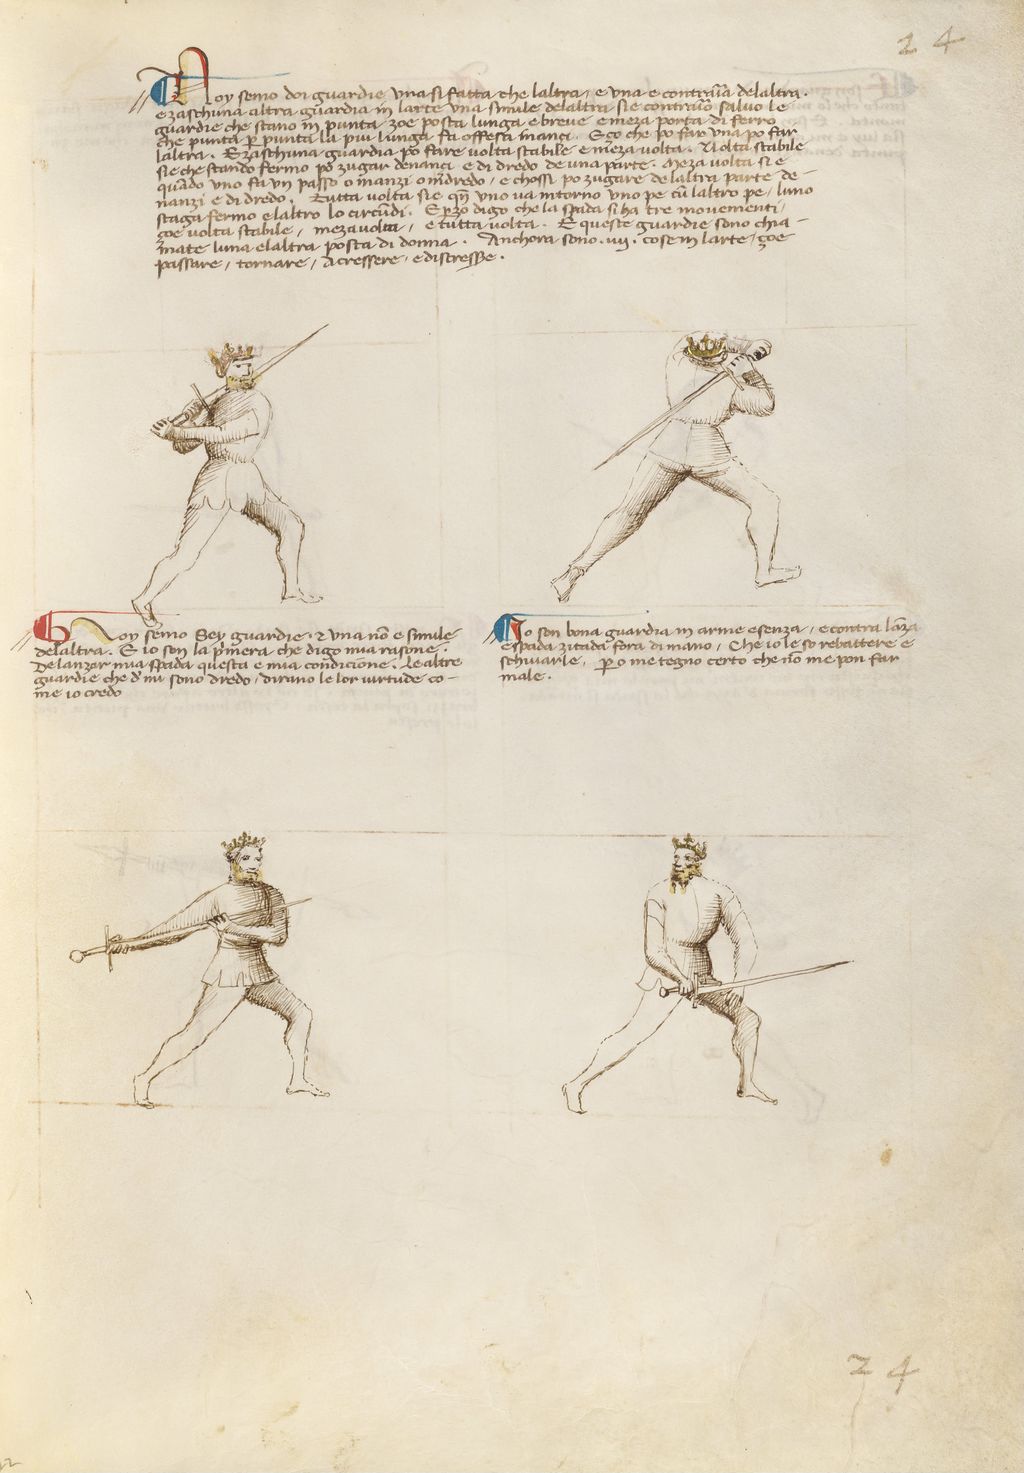 24
Noy semo doi guardie una si fatta che laltra, e una e contraria delaltra.
e zaschuna altra guardia in larte una simile delaltra si e contrario salvo le
guardie che stano in punta, zoe posta lunga e breve e meza porta di ferro
che punta per punta la piu lunga fa offesa inanci. E ço che po far una po far
laltra. E zaschuna guardia po fare volta stabile e meza volta. Volta stabile
si e che stando fermo po zugar denanci e di dredo de una parte. Meza volta si e
quando uno fa un passo o inanzi o indredo, e chossi po zugare de laltra parte de-
nanzi e di dredo. Tutta volta si e quando uno va intorno uno pe cum laltro pe, luno
staga fermo e laltro lo circundi. E perzo digo che la spada si ha tre movementi,
zoe volta stabile, meza volta, e tutta volta. E queste guardie sono chia-
mate luna e laltra posta di donna. Anchora sono .iiij. cose in larte, zoe
passare, tornare, acressere, e discressere.
Noy semo Sey guardie, & una non e simile
delaltra. E io son la primera che digo mia rasone.
De lanzar mia spada questa e mia condicione. Le altre
guardie che de mi sono dredo, dirano le lor virtude co-
me io credo
Io son bona guardia in arme e senza, e contra lanza
e spada zitada fora di mano, Che io le so rebattere e
schivarle, per o me tegno certo che non me pon far
male.
24